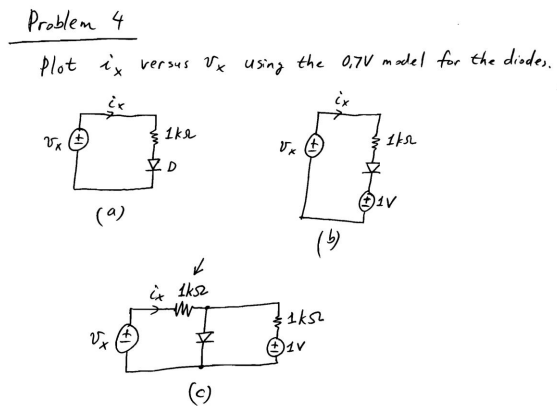 Problem 4
Plot ix versus vx using the 0,7V model for the diodes.
ix
vx
1kΩ
D
(a)
ix
vx
1kΩ
1V
(b)
ix
1kΩ
vx
1kΩ
1V
(c)